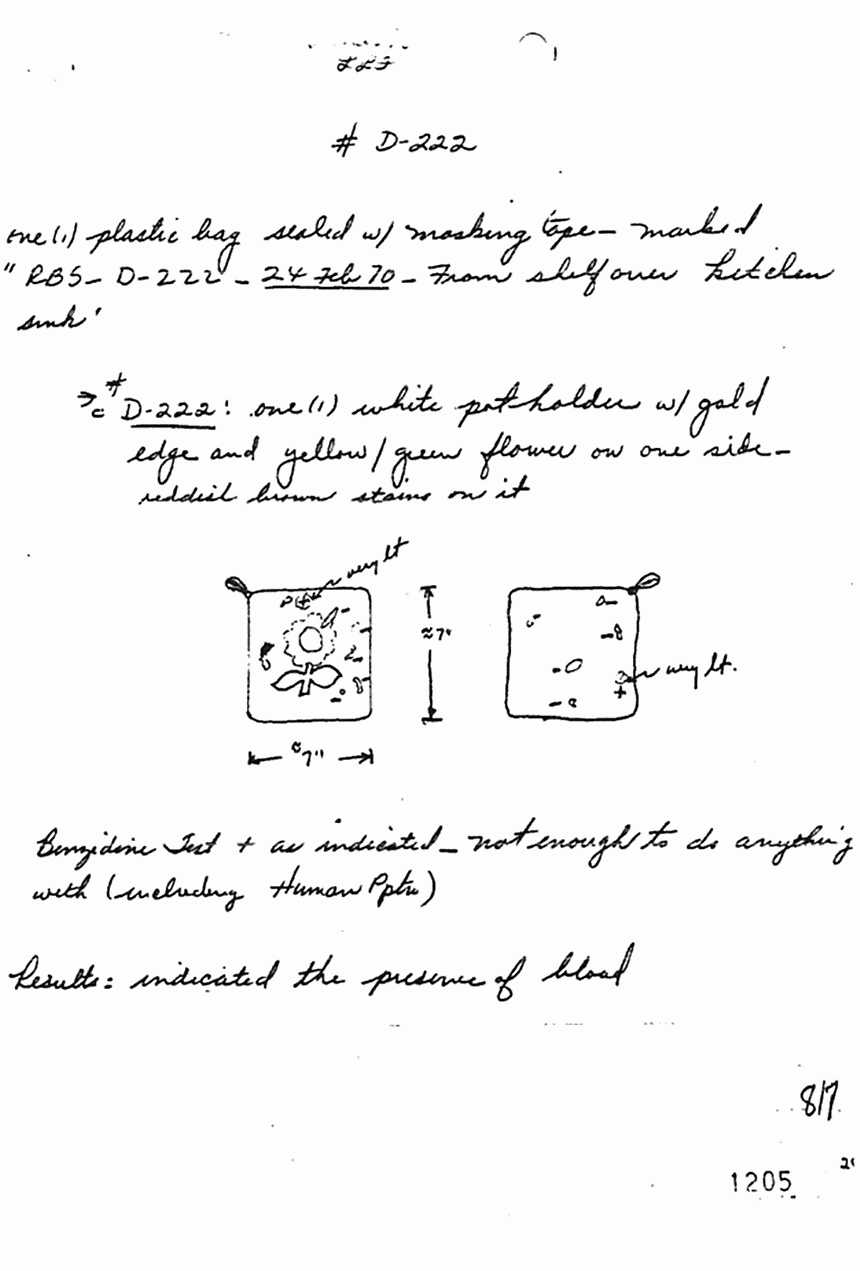 222
# D-222
one (1) plastic bag sealed w/ masking tape - marked
" RBS - D-222 - 24 Feb 70 - From shelf over kitchen
sink "
# D-222 : one (1) white potholder w/ gold
edge and yellow / green flower on one side -
reddish brown stains on it
very lt
≈7"
very lt.
≈7"
Benzidine Test + as indicated - not enough to do anything
with (including Human Pptn)
Results: indicated the presence of blood
817
1205